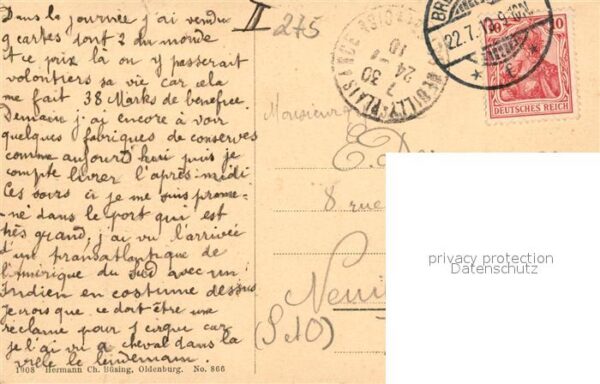 II
275
Dans la journée j'ai vendu
9 cartes dont 2 du monde
et ce prix là on y passerait
volontiers sa vie car cela
me fait 38 Marks de benefice
Demain j'ai encore à voir
quelques fabriques de conserves
comme aujourd'hui puis je
compte livrer l'après-midi
Ces soirs ci je me suis prome-
né dans le port qui est
très grand, j'ai vu l'arrivée
d'un transatlantique de
l'Amérique du Sud avec un
Indien en costume dessus
je crois que ce doit être une
réclame pour 1 cirque car
je l'ai vu a cheval dans la
ville le lendemain.
1908 Hermann Ch. Büsing, Oldenburg. No. 866
NEUILLY-PLAISANCE
7 30
24 -7
10
BR
22.7.10.9-10N.
* f *
10 10
DEUTSCHES REICH
Monsieur
E. D
8 rue
Neuil
(S et O)
privacy protection
Datenschutz